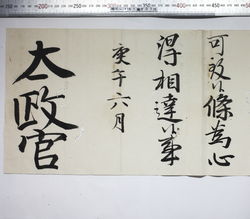 可致候條為心
得相達候事
庚午六月
太政官